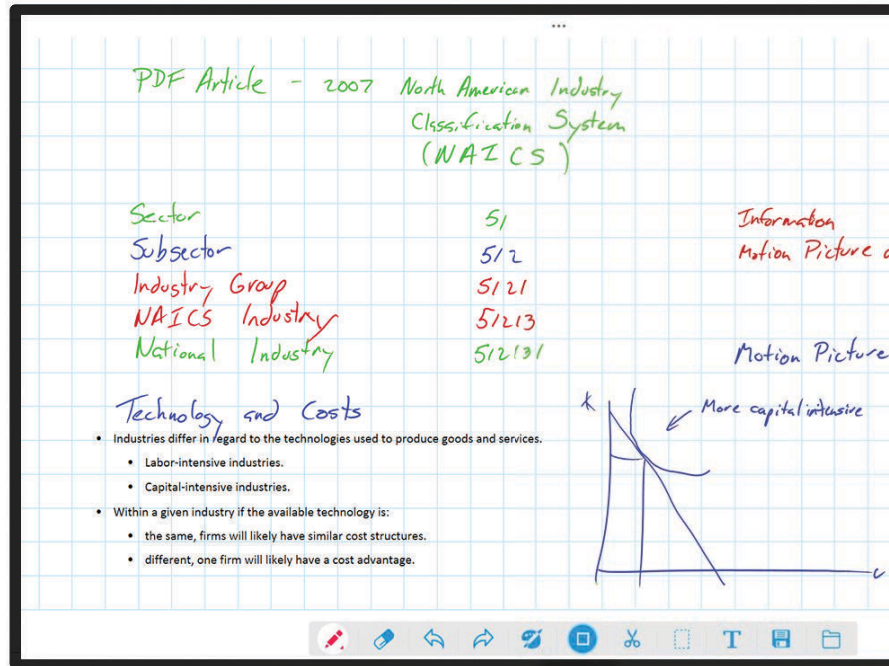 PDF Article - 2007 North American Industry
Classification System
(NAICS)
Sector 51 Information
Subsector 512 Motion Picture a
Industry Group 5121
NAICS Industry 51213
National Industry 512131 Motion Picture
Technology and Costs
K More capital intensive
• Industries differ in regard to the technologies used to produce goods and services.
• Labor-intensive industries.
• Capital-intensive industries.
• Within a given industry if the available technology is:
• the same, firms will likely have similar cost structures.
• different, one firm will likely have a cost advantage.
T